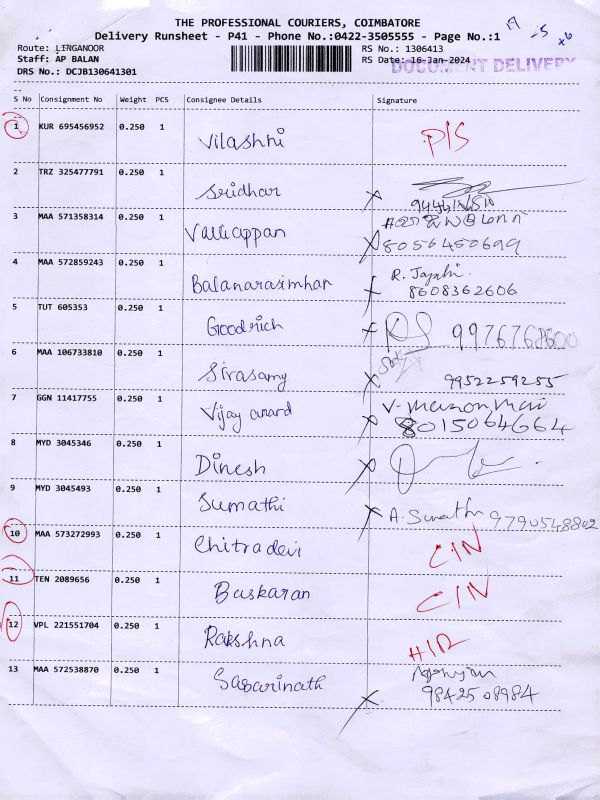 THE PROFESSIONAL COURIERS, COIMBATORE
Delivery Runsheet - P41 - Phone No.:0422-3505555 - Page No.:1
Route: LINGANOOR RS No.: 1306413
Staff: AP BALAN RS Date: 16-Jan-2024
DOCUMENT DELIVERY
DRS No.: DCJB130641301
S No Consignment No Weight PCS Consignee Details Signature
1 KUR 695456952 0.250 1 Vilashni P/S
2 TRZ 325477791 0.250 1 Sridhar
3 MAA 571358314 0.250 1 Valliappan
8056450699
4 MAA 572859243 0.250 1 Balanarasimhan R. Jayahi.
8608362606
5 TUT 605353 0.250 1 Goodrich
6 MAA 106733810 0.250 1 Sivasamy 9952259255
7 GGN 11417755 0.250 1 Vijay anand
8015064664
8 MYD 3045346 0.250 1 Dinesh
9 MYD 3045493 0.250 1 Sumathi A. Sumathi 9790548802
10 MAA 573272993 0.250 1 Chitradevi CIN
11 TEN 2089656 0.250 1 Baskaran CIN
12 VPL 221551704 0.250 1 Rakshna
13 MAA 572538870 0.250 1 Sabarinath
9842508984